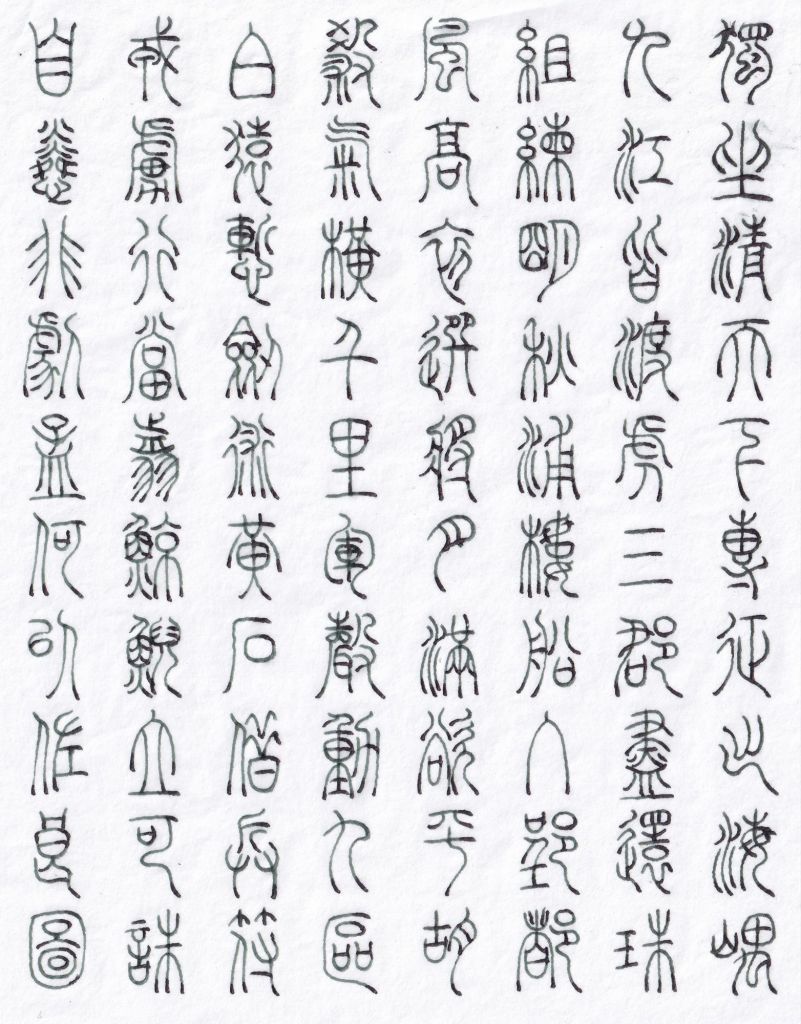 獨坐清天下專征出海嵎
九江皆渡虎三郡盡還珠
組練明秋浦樓船入郢都
風高初選將月滿欲平胡
殺氣橫千里軍聲動九區
白猿慙劍術黃石借兵符
戎虜行當翦鯨鯢立可誅
自憐非劇孟何以佐良圖